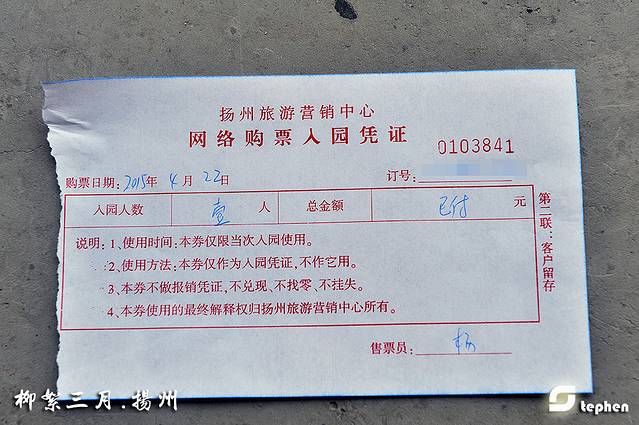 扬州旅游营销中心
网络购票入园凭证
0103841
购票日期:2015年 4月 22日 订号:
入园人数 壹 人 总金额 已付 元
说明:1、使用时间:本券仅限当次入园使用。
2、使用方法:本券仅作为入园凭证,不作它用。
3、本券不做报销凭证,不兑现、不找零、不挂失。
4、本券使用的最终解释权归扬州旅游营销中心所有。
第二联:客户留存
售票员: 杨
柳絮三月.揚州
Stephen